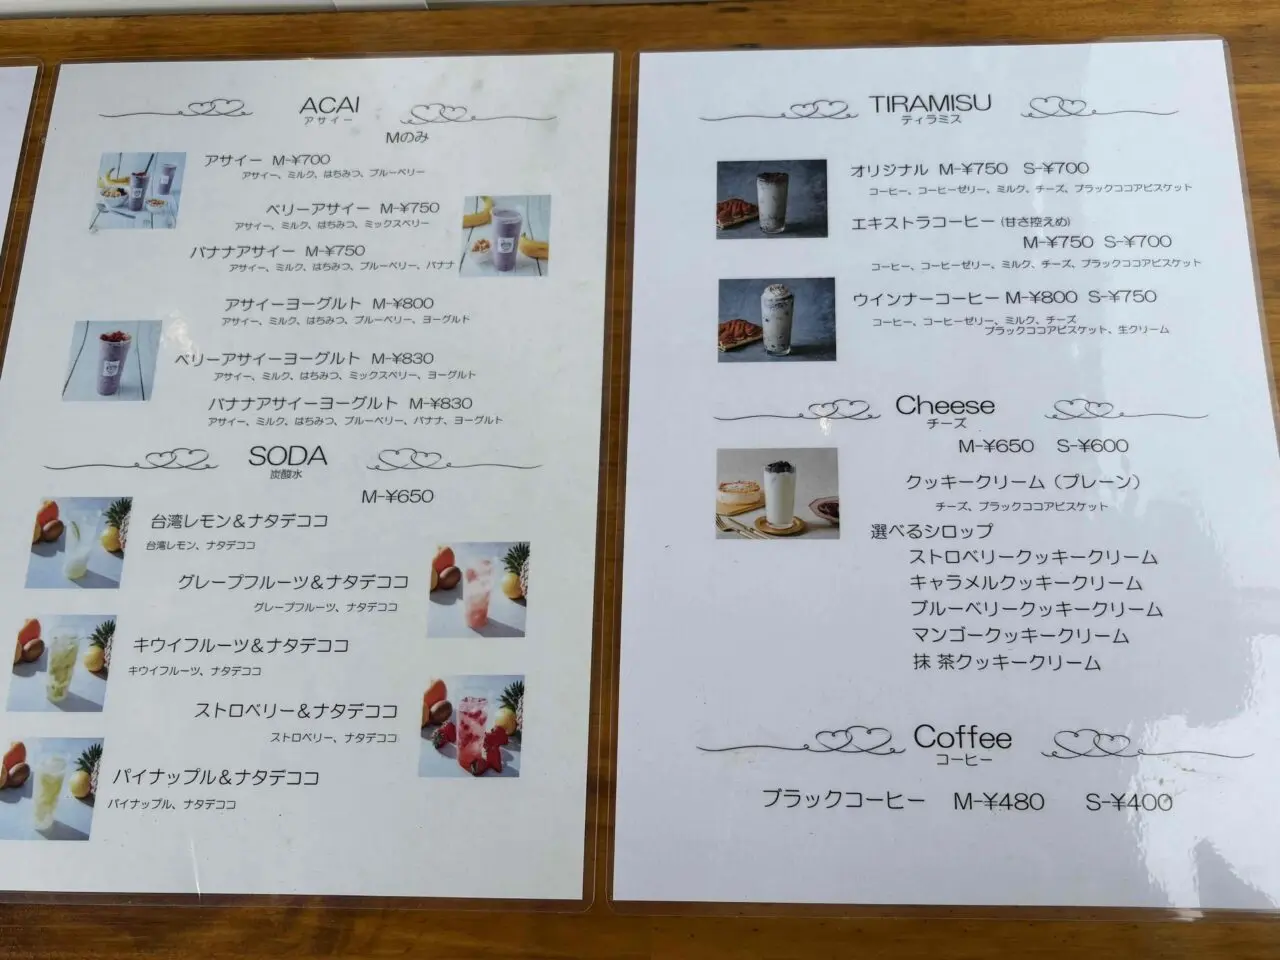 ACAI
アサイー
Mのみ
アサイー M-¥700
アサイー、ミルク、はちみつ、ブルーベリー
ベリーアサイー M-¥750
アサイー、ミルク、はちみつ、ミックスベリー
バナナアサイー M-¥750
アサイー、ミルク、はちみつ、ブルーベリー、バナナ
アサイーヨーグルト M-¥800
アサイー、ミルク、はちみつ、ブルーベリー、ヨーグルト
ベリーアサイーヨーグルト M-¥830
アサイー、ミルク、はちみつ、ミックスベリー、ヨーグルト
バナナアサイーヨーグルト M-¥830
アサイー、ミルク、はちみつ、ブルーベリー、バナナ、ヨーグルト
SODA
炭酸水
M-¥650
台湾レモン&ナタデココ
台湾レモン、ナタデココ
グレープフルーツ&ナタデココ
グレープフルーツ、ナタデココ
キウイフルーツ&ナタデココ
キウイフルーツ、ナタデココ
ストロベリー&ナタデココ
ストロベリー、ナタデココ
パイナップル&ナタデココ
パイナップル、ナタデココ
TIRAMISU
ティラミス
オリジナル M-¥750 S-¥700
コーヒー、コーヒーゼリー、ミルク、チーズ、ブラックココアビスケット
エキストラコーヒー (甘さ控えめ)
M-¥750 S-¥700
コーヒー、コーヒーゼリー、ミルク、チーズ、ブラックココアビスケット
ウインナーコーヒー M-¥800 S-¥750
コーヒー、コーヒーゼリー、ミルク、チーズ
ブラックココアビスケット、生クリーム
Cheese
チーズ
M-¥650 S-¥600
クッキークリーム（プレーン）
チーズ、ブラックココアビスケット
選べるシロップ
ストロベリークッキークリーム
キャラメルクッキークリーム
ブルーベリークッキークリーム
マンゴークッキークリーム
抹 茶クッキークリーム
Coffee
コーヒー
ブラックコーヒー M-¥480 S-¥400